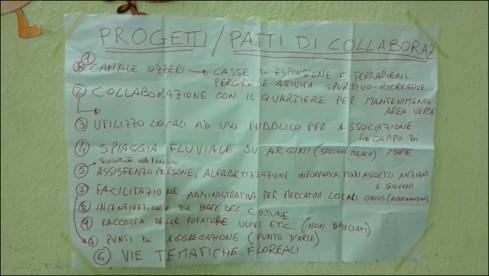 PROGETTI / PATTI DI COLLABORAZ
① CANALE OZZERI → CASSE DI ESPANSIONE E TERRAPIENI
PERCORSI E ATTIVITÀ SPORTIVO-RICREATIVE
② COLLABORAZIONE CON IL QUARTIERE PER MANTENIMENTO
AREA VERDE
③ UTILIZZO LOCALI AD USO PUBBLICO PER ASSOCIAZIONE
LO CAMPO DI
④ SPIAGGIA FLUVIALE SU ARGINI MARE
ASSISTENZA PERSONE, ALFABETIZZAZIONE INFORMATICA PUNTI ASCOLTO ANZIANI
E GIOVANI
⑦ FACILITAZIONE AMMINISTRATIVA PER MERCATINI LOCALI
⑧ INCENTIVAZIONE DA PARTE DEL COMUNE
⑨ RACCOLTA DELLE POTATURE ULIVI ETC. (NON BRUCIATI)
PUNTI DI AGGREGAZIONE (PUNTO D'ARTE)
⑥ VIE TEMATICHE FLOREALI